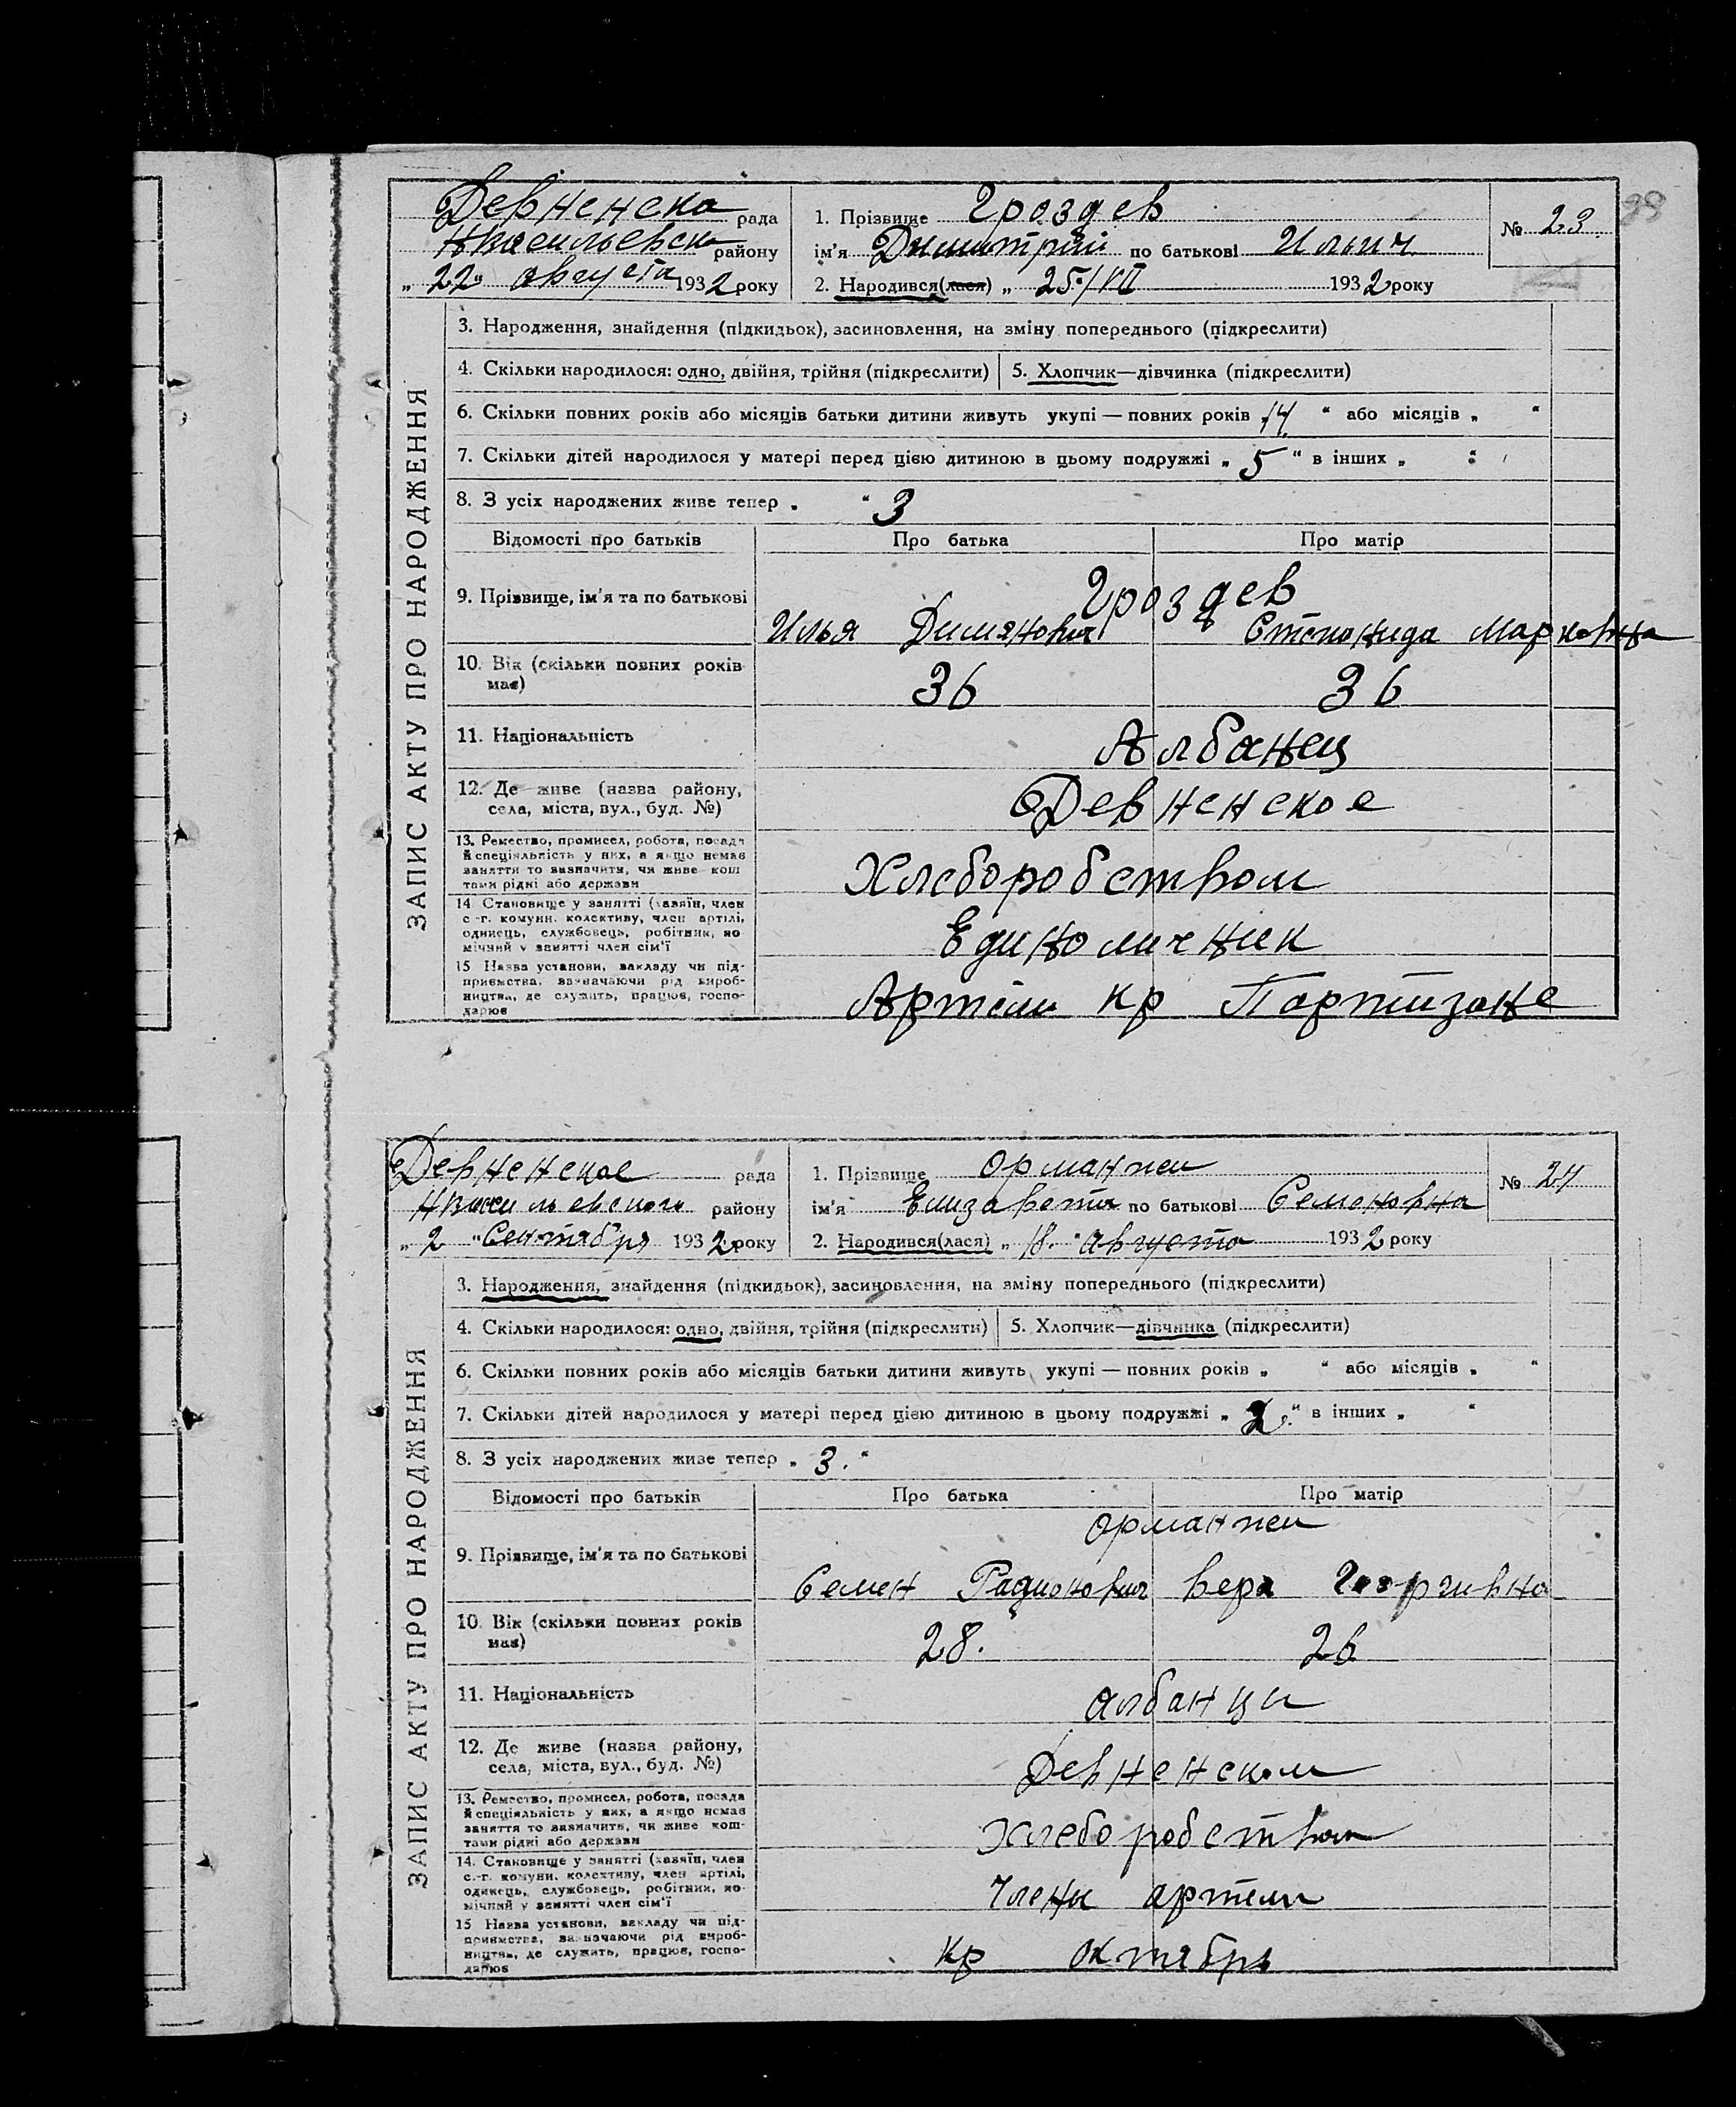 Девненска рада
Нвасильевск району
„ 22 “ августа 1932 року
1. Прізвище Гроздев
ім'я Димитрий по батькові Ильич
2. Народився(лася) „ 25/VII 1932 року
№ 23.
39
ЗАПИС АКТУ ПРО НАРОДЖЕННЯ
3. Народження, знайдення (підкидьок), засиновлення, на зміну попереднього (підкреслити)
4. Скільки народилося: одно, двійня, трійня (підкреслити) 5. Хлопчик—дівчинка (підкреслити)
6. Скільки повних років або місяців батьки дитини живуть укупі — повних років „ 14 “ або місяців „ “
7. Скільки дітей народилося у матері перед цією дитиною в цьому подружжі „ 5 “ в інших „ “
8. З усіх народжених живе тепер „ “ 3
Відомості про батьків Про батька Про матір
9. Прізвище, ім'я та по батькові Гроздев
Илья Димянович Степонида Марковна
10. Вік (скільки повних років має) 36 36
11. Національність Албанец
12. Де живе (назва району, села, міста, вул., буд. №) Девненское
13. Ремество, промисел, робота, посада
й спеціяльність у них, а якщо немає
заняття то визначити, чи живе кош
тами рідні або держави Хлеборобством
14 Становище у занятті (хазяїн, член
с.-г. комуни, колективу, член артілі,
одинець, службовець, робітник, по
мічний у занятті член сім'ї Единоличник
15 Назва установи, закладу чи під-
приємства, зазначаючи рід вироб-
ництва, де служить, працює, госпо-
дарює Артели кр Портизоне
Девненское рада
Нвасильевского району
„ 2 “ Сентября 1932 року
1. Прізвище Орманжи
ім'я Елизавета по батькові Семеновна
2. Народився(лася) „ 18. “ августа 1932 року
№ 24
ЗАПИС АКТУ ПРО НАРОДЖЕННЯ
3. Народження, знайдення (підкидьок), засиновлення, на зміну попереднього (підкреслити)
4. Скільки народилося: одно, двійня, трійня (підкреслити) 5. Хлопчик—дівчинка (підкреслити)
6. Скільки повних років або місяців батьки дитини живуть укупі — повних років „ “ або місяців „ “
7. Скільки дітей народилося у матері перед цією дитиною в цьому подружжі „ 2. “ в інших „ “
8. З усіх народжених живе тепер „ 3. “
Відомості про батьків Про батька Про матір
9. Прізвище, ім'я та по батькові Орманжи
Семен Радионович Вера Георгивна
10. Вік (скільки повних років має) 28. 26
11. Національність албанци
12. Де живе (назва району, села, міста, вул., буд. №) Девненском
13. Ремество, промисел, робота, посада
й спеціяльність у них, а якщо немає
заняття то визначити, чи живе кош-
тами рідні або держави Хлеборобством
14. Становище у занятті (хазяїн, член
с.-г. комуни, колективу, член артілі,
одинець, службовець, робітник, по
мічний у занятті член сім'ї Члены артели
15 Назва установи, закладу чи під-
приємства, зазначаючи рід вироб-
ництва, де служить, працює, госпо-
дарює Кр октябрь